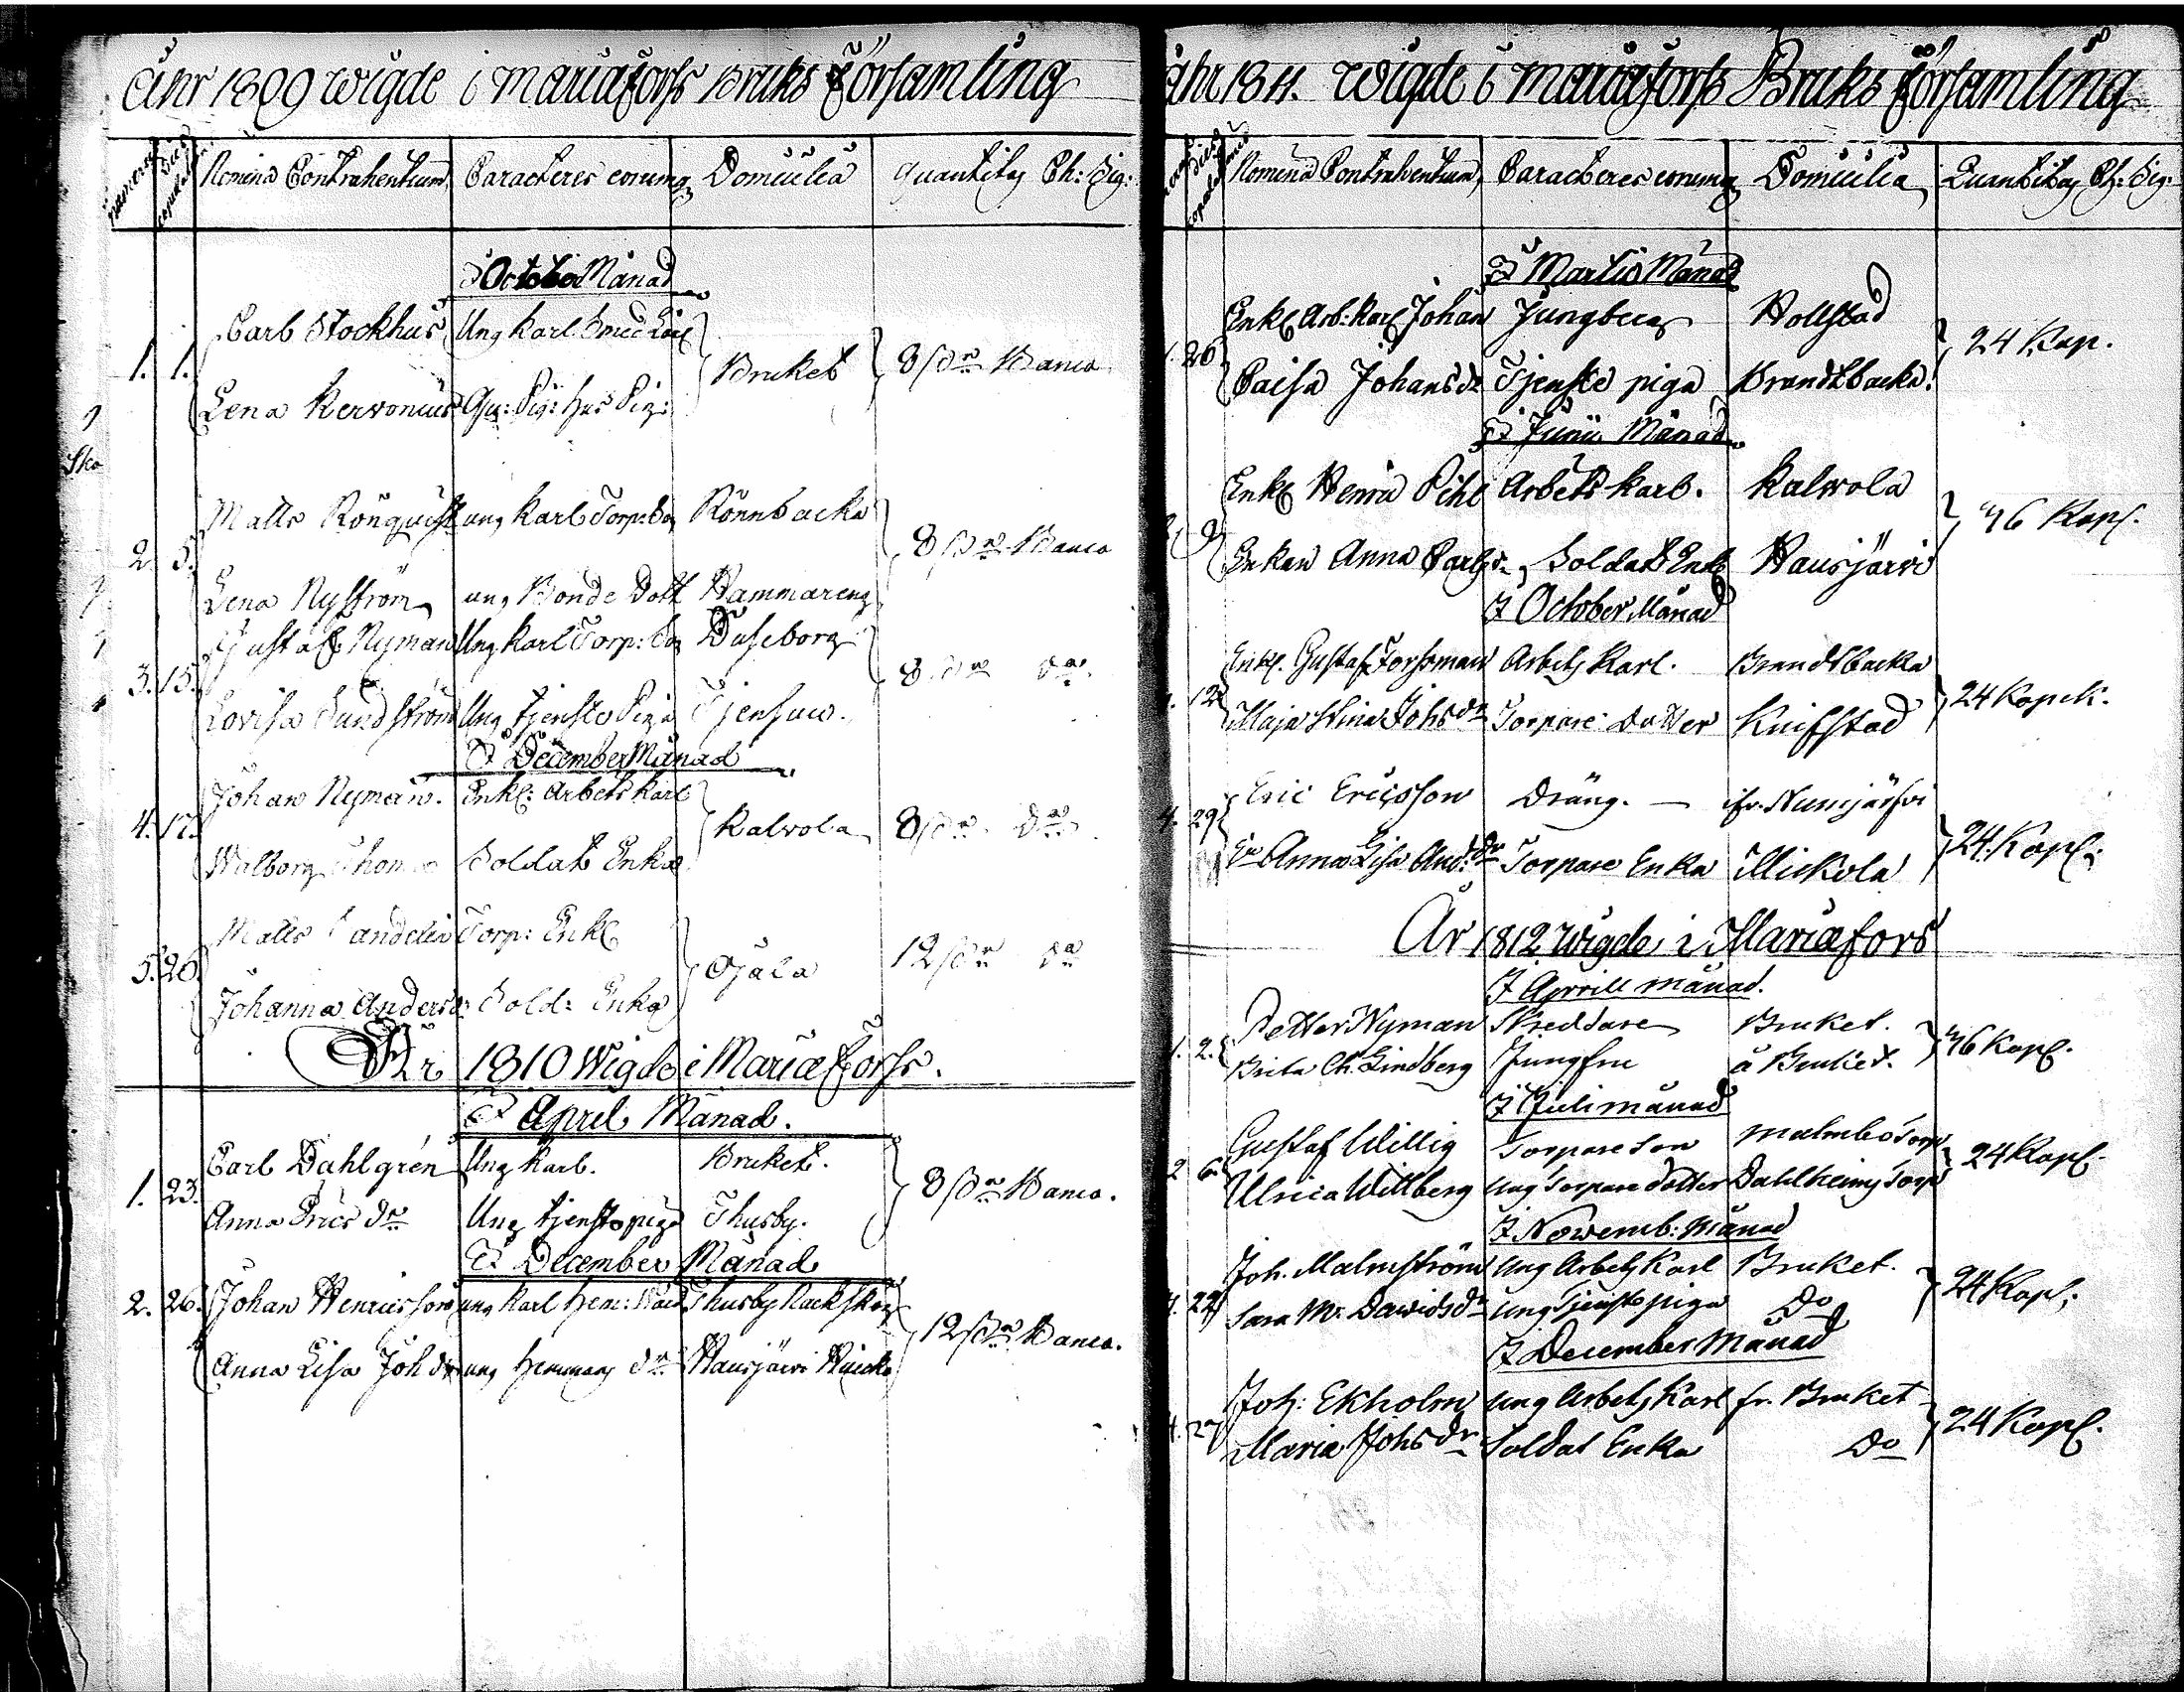 Åhr 1809 wigde i Mariæfors Bruks Församling
Numerus
Dies copulat:
Nomina Contrahentium
Caracteres eorumq
Domicilia
quantitas Ch: Sig:
I October Månad
Carl Stockhus Ung Karl Smed
1. 1. Bruket 8 sdr Banco
Lena Kervonius Pig:
Matts Rönquist ung Karl Torp: Son Rönnbacka
2. 5. 8 sdr Banco
Lena Nyström ung Bonde Dott Hammareng
Gustaf Nyman Ung Karl Torp: Son
3. 15. 8 sdr do
Lovisa Sundström Ung tjenste Piga
I December Månad
Johan Nyman. Enkl: Arbets karl
4. 17. Kalvola 8 sdr do
Walborg Thoms Soldat Enka
Matts Torp: Enkl
5. 26. Ojala 12 sdr do
Johanna Andersd: Sold: Enka
År 1810 Wigde i Mariæfors.
I April Månad.
Carl Dahlgrén Ung Karl. Bruket.
1. 23. 8 sdr Banco.
Anna Erics dr Ung tjenste piga Thusby.
I December Månad
2. 26. Johan Henricsson ung Karl Thusby
12 sdr Banco.
Anna Lisa Joh dr ung Hemmans dr Hausjärvi
Åhr 1811. Wigde i Mariæfors Bruks Församling
Nomina Contrahentium
Caracteres eorumq
Domicilia
Quantitas Ch: Sig:
I Martis Månad
Enkl Arb: Karl Johan Ljungberg
1. 26 24 Kop.
Caisa Johansdr Tjenste piga Brandtbacka.
I Junii Månad
Enkl Henric Pihl Arbets karl. Kalvola
2. 9 46 Kop.
Enkan Anna Carlsd. Soldats Enka Hausjärvi
I October Månad
Enkl. Gustaf Forssman Arbets Karl. Brandtbacka
12 24 Kopek.
Maja Stina Johs dr Torpare dotter Knifstad
Eric Ericsson Dräng. — fr. Numjärfvi
4. 29 24 Kop.
En Anna Lisa And: dr Torpare Enka Mickola
År 1812 Wigde i Mariæfors
I Aprill månad.
Petter Nyman Skreddare Bruket.
1. 2. 46 Kop.
Brita Ch. Lindberg Jungfru å Bruket.
I Juli månad
Gustaf Willig Torpare Son Malmbo Torp
2 6 24 Kop.
Ulrica Willberg Ung Torpare dotter Dahlheims Torp
I Novemb: Månad
Joh. Malmström ung Arbets Karl Bruket.
22 24 Kop.
Sara M. Davids dr ung Tjenste piga Do
I December Månad
Joh: Ekholm ung Arbets Karl fr. Bruket
4. 27 24 Kop.
Maria Johs dr Soldat Enka Do